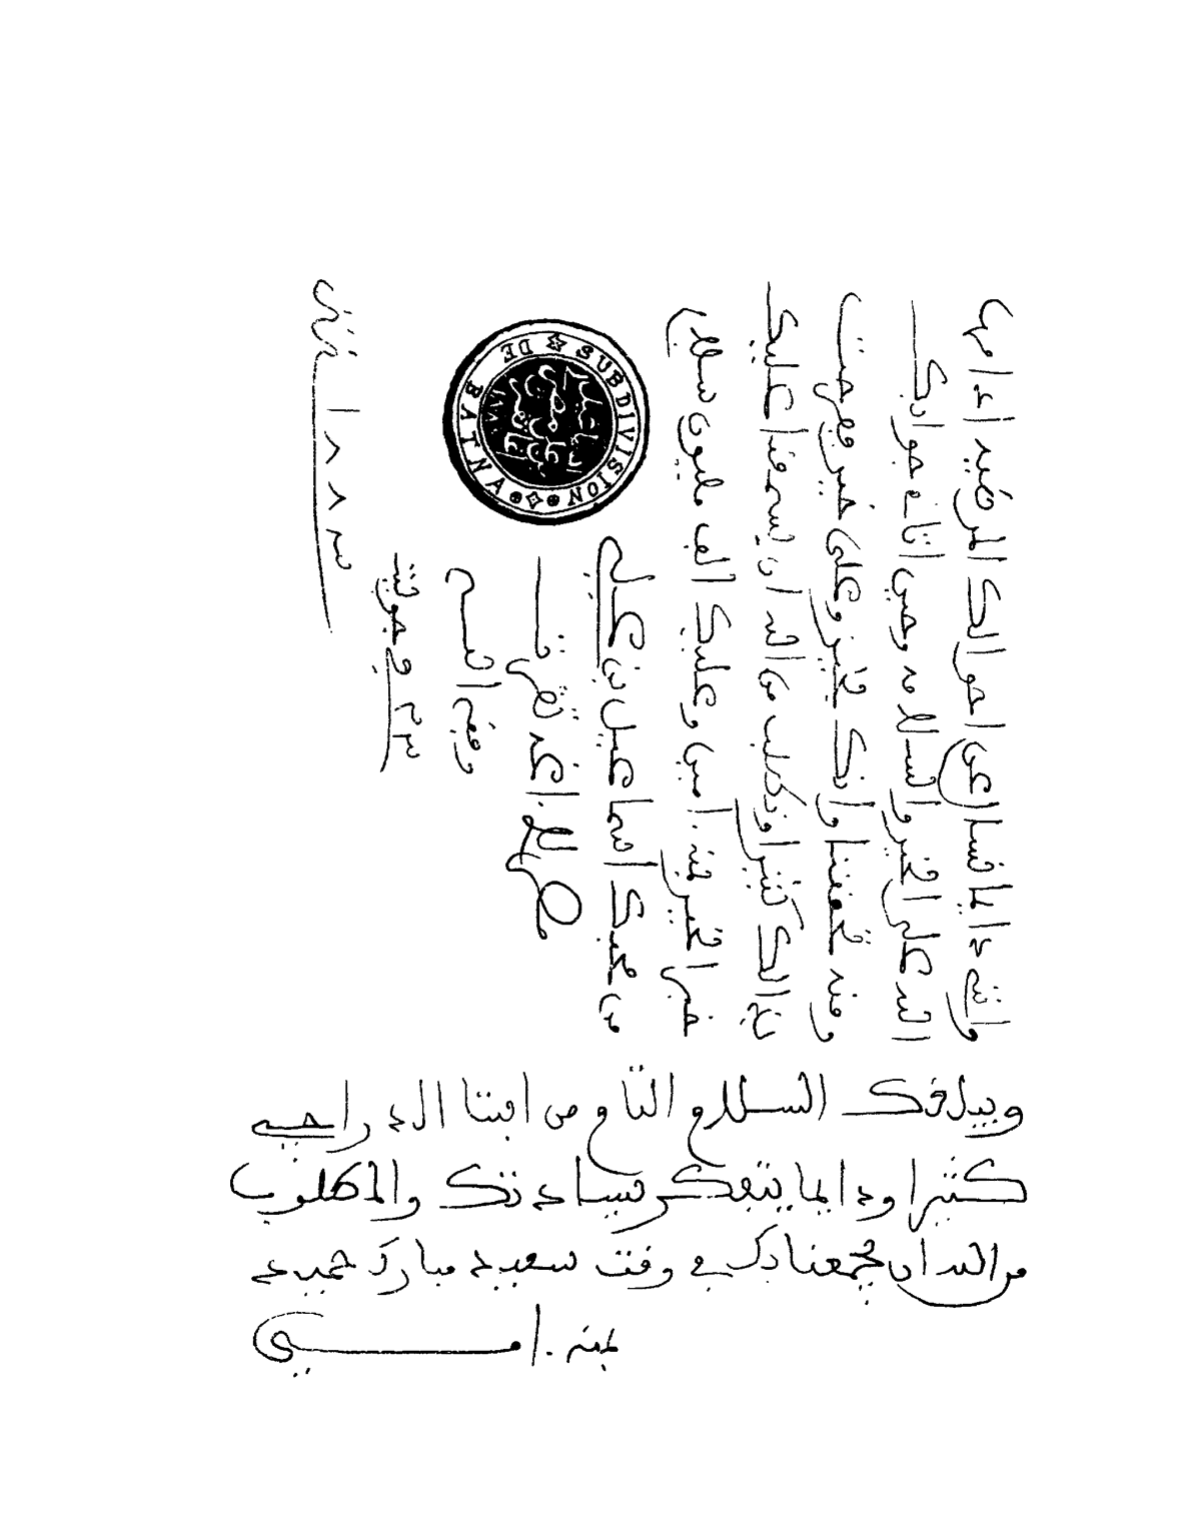 وانت دايما نسار عن احوالك المرضية ادامها
الله على الخير والسلامة وحين اتانا جوابك
ومنه تحققنا وانك بخير وعلى خير فرحت
بذالك كثيرا ونطلب من الله ان يسمعنا عليك
خبر الخير بمنه . امين وعليك الف مليون سلام
من محبك اسماعيل بن علي
اغة تقرت
جوليت
١٨٨٣
SUBDIVISION DE BATNA
ويبلغك السلام التام من ابننا الدراجي
كثيرا ودايما يتفكر بسيادتك والمطلوب
من الله ان يجمعنا بك في وقت سعيد مبارك حميد
بمنه . امين